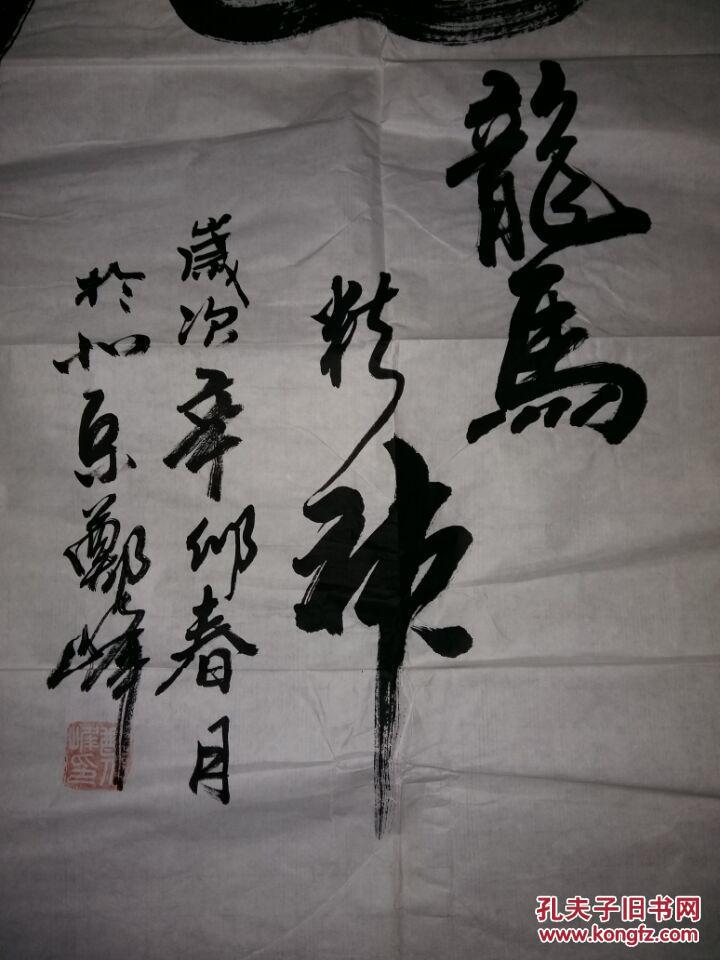 龍馬
精神
歲次辛卯春月
於北京鄭峰
孔夫子旧书网
www.kongfz.com